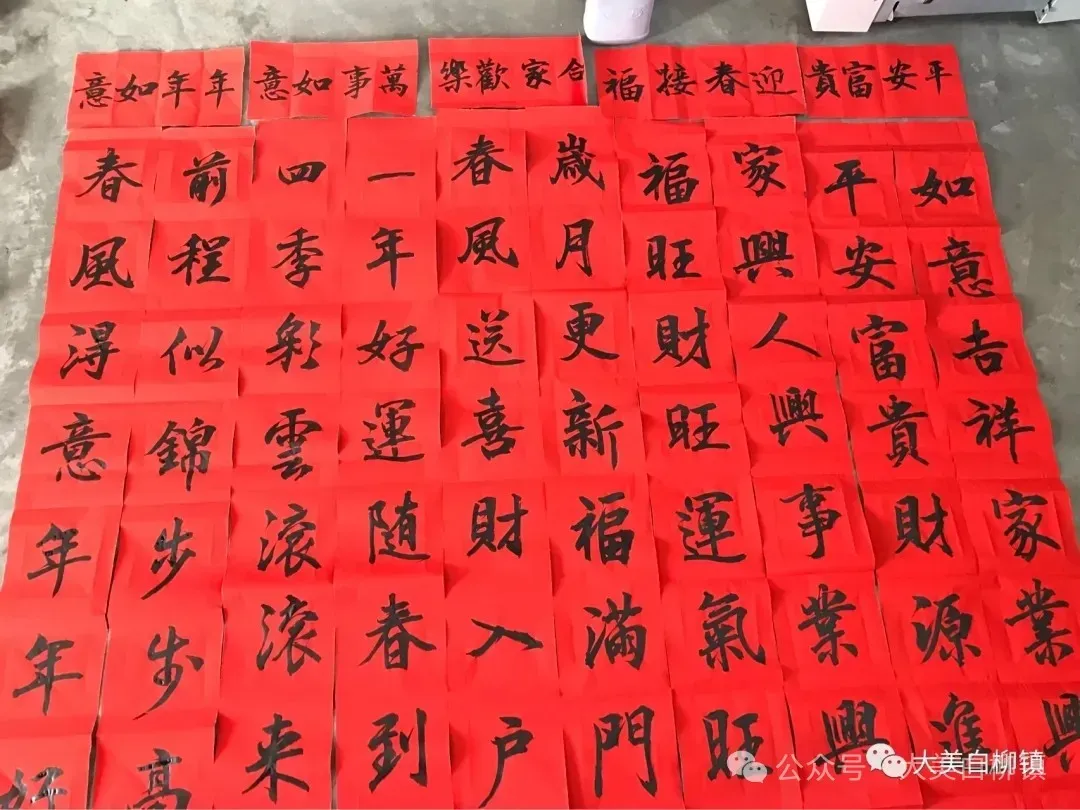 平安富貴
迎春接福
合家歡樂
萬事如意
年年如意
如意吉祥家業興
平安富貴財源進
家興人興事業興
福旺財旺運氣旺
歲月更新福滿門
春風送喜財入户
一年好運随春到
四季彩雲滾滾来
前程似錦步步高
春風得意年年好
公众号 大美白柳镇
大美白柳镇